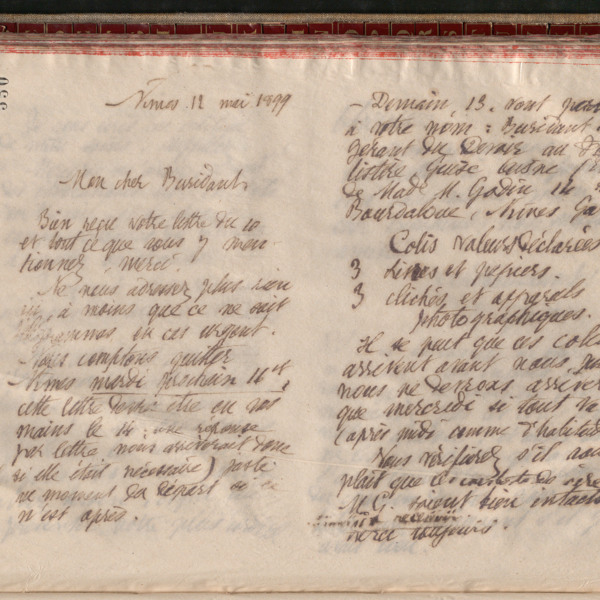 330
Nîmes 12 mai 1899
Mon cher Buridant,
Bien reçu votre lettre du 10
et tout ce que vous y men-
tionnez, merci.
Ne nous adressez plus rien
ici, à moins que ce ne soit
télégrammes en cas urgent.
Nous comptons quitter
Nîmes mardi prochain 16 ct,
cette lettre devra être en vos
mains le 14; une réponse
par lettre nous arriverait donc
si elle était nécessaire) juste
au moment du départ si ce
n'est après.
- Demain 13. vont
à votre nom: Buridant
gérant du Devoir au
Guise
de Made M. Godin 14
Bourdaloue, Nîmes Ga
Colis valeurs Déclarées
3 Livres et papiers.
3 clichés et appareils
photographiques.
Il se peut que ces colis
arrivent avant nous,
nous ne devrons arriver
que mercredi si tout va
(après midi comme d'habitude
Vous vérifierez s'il vous
plaît que les cachets de cire
M.G. soient bien intacts
merci toujours.